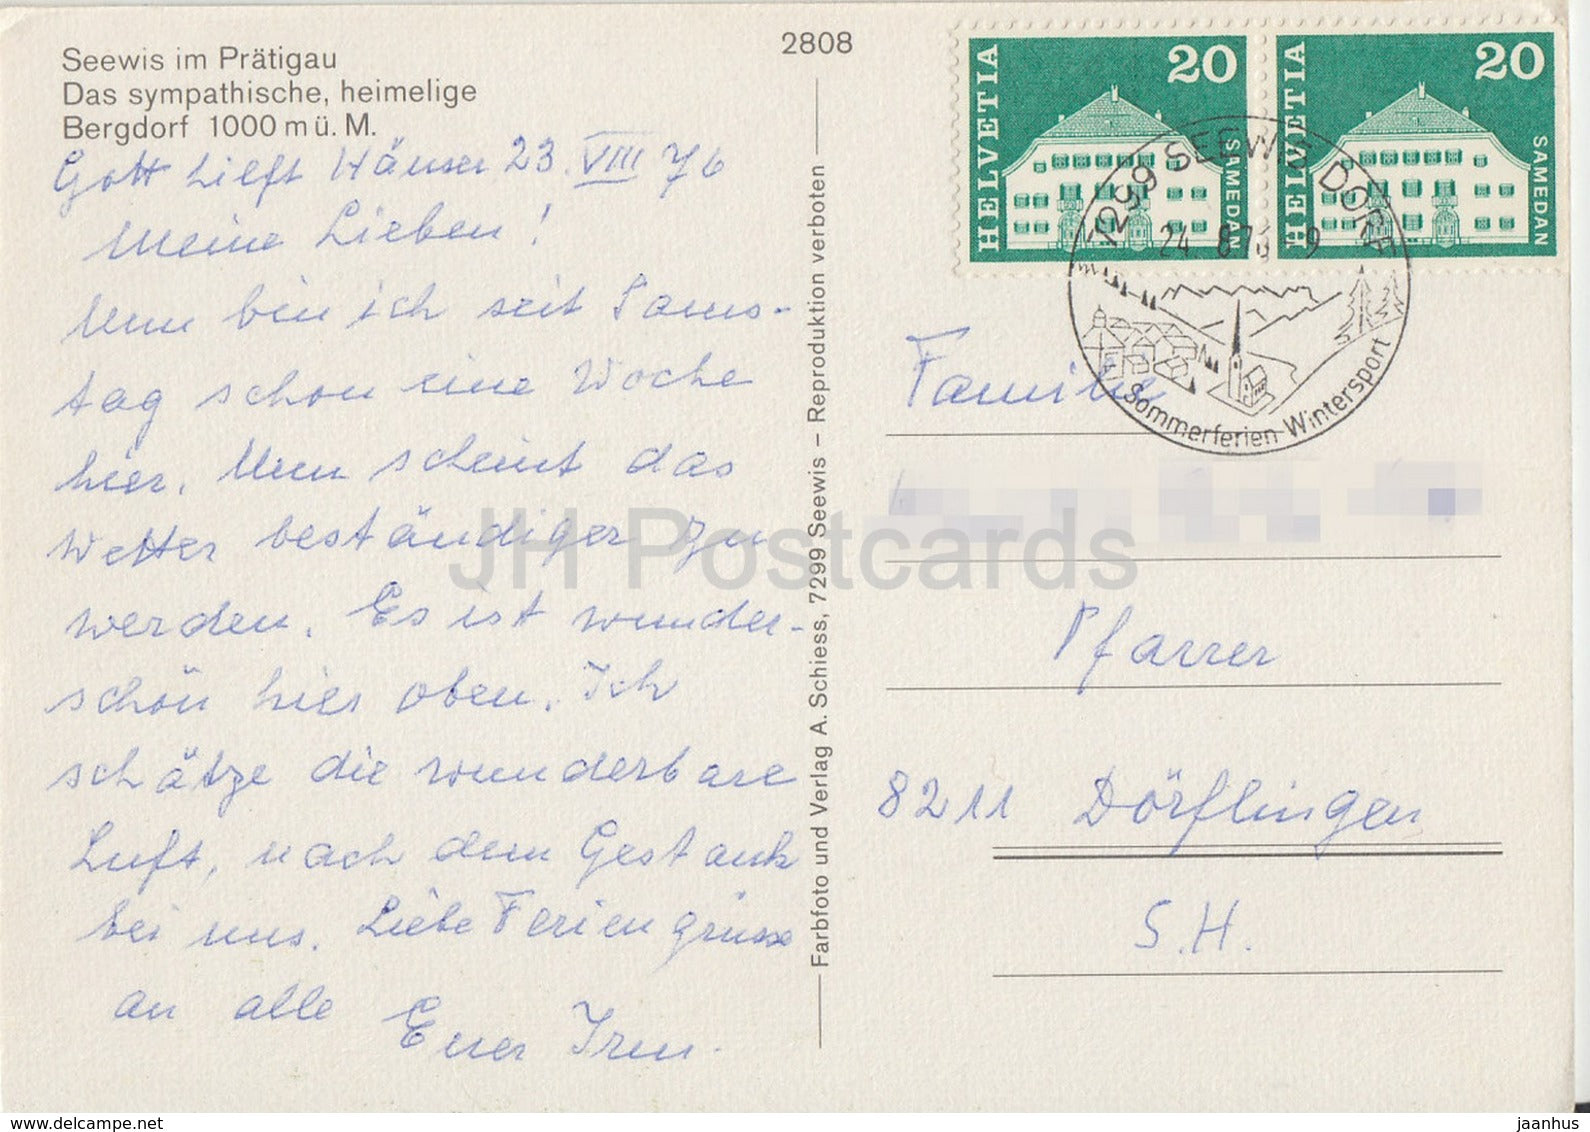 Seewis im Prätigau
Das sympathische, heimelige
Bergdorf 1000 m ü. M.
2808
Gott hilft Häuser 23. VIII 76
Meine Lieben!
Nun bin ich seit Sams-
tag schon eine Woche
hier. Nun scheint das
Wetter beständiger zu
werden. Es ist wunder-
schön hier oben. Ich
schätze die wunderbare
Luft, nach dem Gestank
bei uns. Liebe Feriengrüsse
an alle Euer
Farbfoto und Verlag A. Schiess, 7299 Seewis – Reproduktion verboten
HELVETIA 20 SAMEDAN
HELVETIA 20 SAMEDAN
7299 SEEWIS DORF
24. 8.76 - 9
Sommerferien Wintersport
Familie
Pfarrer
8211 Dörflingen
S.H.
JH Postcards
jaanhus
www.delcampe.net